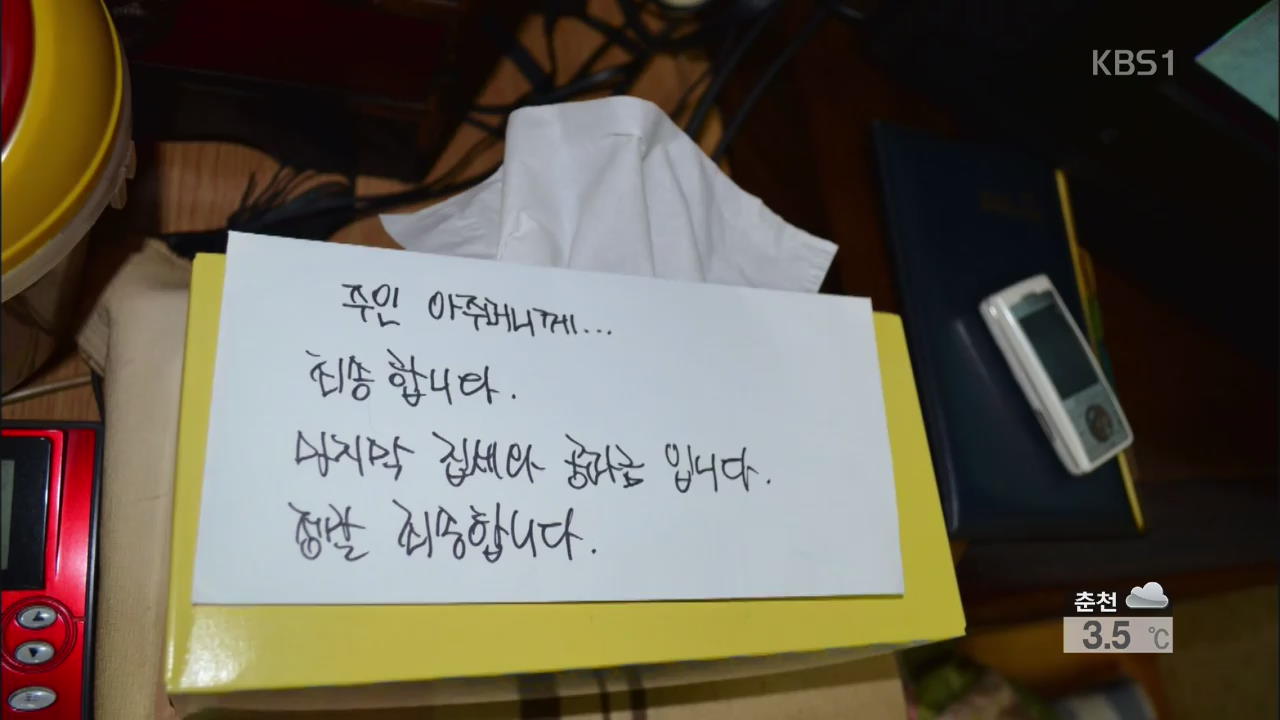 KBS1
주인 아주머니께...
죄송합니다.
마지막 집세와 공과금 입니다.
정말 죄송합니다.
춘천
3.5 ℃